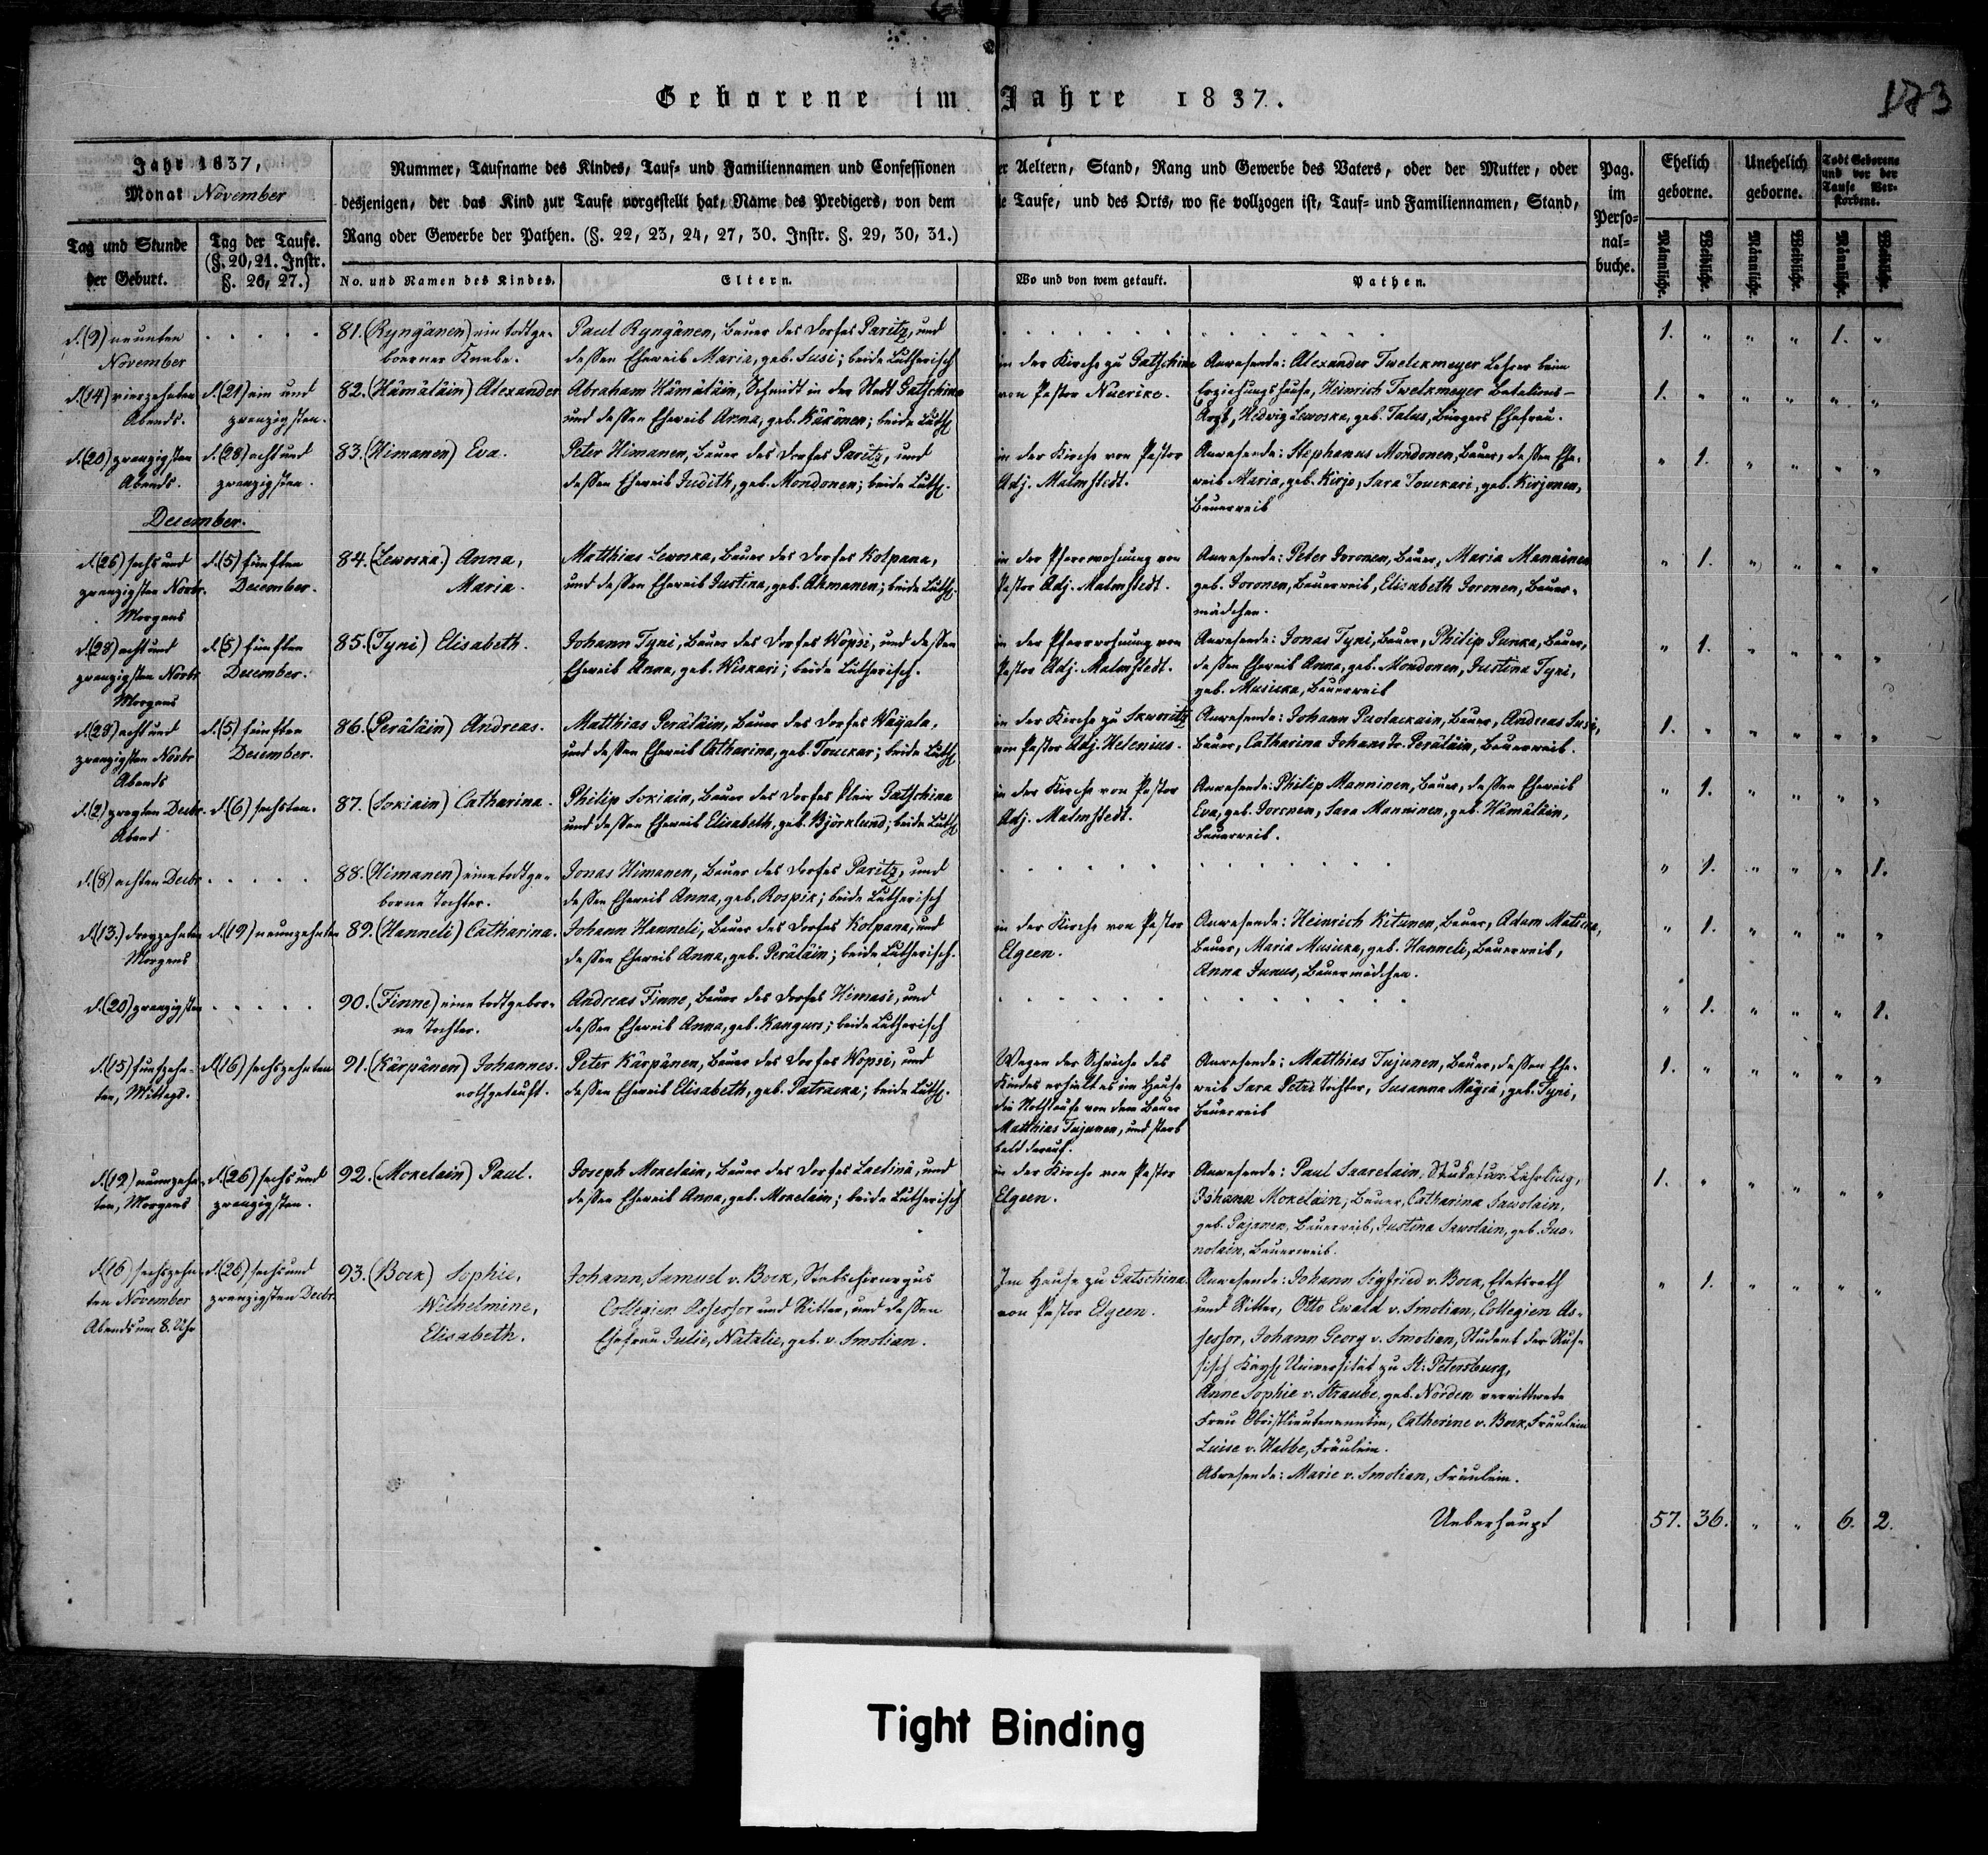 Geborene im Jahre 1837.
173
Jahr 1837,
Monat November
Tag und Stunde der Geburt.
Tag der Taufe. (§. 20, 21. Instr. §. 26, 27.)
Nummer, Taufname des Kindes, Tauf- und Familiennamen und Confessionen der Aeltern, Stand, Rang und Gewerbe des Vaters, oder der Mutter, oder
desjenigen, der das Kind zur Taufe vorgestellt hat, Name des Predigers, von dem die Taufe, und des Orts, wo sie vollzogen ist, Tauf- und Familiennamen, Stand,
Rang oder Gewerbe der Pathen. (§. 22, 23, 24, 27, 30. Instr. §. 29, 30, 31.)
No. und Namen des Kindes.
Eltern.
Wo und von wem getauft.
Pathen.
Pag. im Perso-nal-buche.
Ehelich geborne.
Unehelich geborne.
Todt Geborene und vor der Taufe Ver-storbene.
Männliche. Weibliche. Männliche. Weibliche. Männliche. Weibliche.
d. (9) neunten
November
81. (Ryngänen) ein todtge-
borner Knabe.
Paul Ryngänen, Bauer des Dorfes Paritz, und
dessen Eheweib Maria, geb. Susi; beide Lutherisch
1. " " " 1. "
d. (14) vierzehnten
Abends.
d. (21) ein und
zwanzigsten.
82. (Hämäläin) Alexander
Abraham Hämäläin, Schmidt in der Stadt Gatschina
und dessen Eheweib Anna, geb. Käkönen; beide Luth.
in der Kirche zu Gatschina
von Pastor Nuerike.
Anwesende: Alexander Twelckmeyer Lehrer beim
Erziehungshause, Heinrich Twelkmeyer Batalions-
Arzt, Hedwig Lewoska, geb. Talus, Bürgers Ehefrau.
1. " " " " "
d. (20) zwanzigsten
Abends.
d. (28) acht und
zwanzigsten.
83. (Himanen) Eva.
Peter Himanen, Bauer des Dorfes Paritz, und
dessen Eheweib Judith, geb. Mondonen; beide Luth.
in der Kirche von Pastor
Adj. Malmstedt.
Anwesende: Stephanus Mondonen, Bauer, dessen Ehe-
weib Maria, geb. Kirjo, Sara Touckari, geb. Kirjonen,
Bauerweib
" 1. " " " "
December.
d. (26) sechs und
zwanzigsten Novbr.
Morgens
d. (5) fünften
December.
84. (Lewoska) Anna,
Maria.
Matthias Lewoska, Bauer des Dorfes Kolpana,
und dessen Eheweib Justina, geb. Ahmanen; beide Luth.
in der Pfarrwohnung von
Pastor Adj. Malmstedt.
Anwesende: Peter Joronen, Bauer, Maria Manninen
geb. Joronen, Bauerweib, Elisabeth Joronen, Bauer-
mädchen.
" 1. " " " "
d. (28) acht und
zwanzigsten Novbr
Morgens
d. (5) fünften
December.
85. (Tyni) Elisabeth.
Johann Tyni, Bauer des Dorfes Wopsi, und dessen
Eheweib Anna, geb. Wiskari; beide Lutherisch.
in der Pfarrwohnung von
Pastor Adj. Malmstedt.
Anwesende: Jonas Tyni, Bauer, Philip Punka, Bauer,
dessen Eheweib Anna, geb. Mondonen, Justina Tyni,
geb. Musicka, Bauerweib
" 1. " " " "
d. (28) acht und
zwanzigsten Novbr
Abends
d. (5) fünften
December.
86. (Peräläin) Andreas.
Matthias Peräläin, Bauer des Dorfes Wäjala,
und dessen Eheweib Catharina, geb. Touckar; beide Luth.
in der Kirche zu Skworitz
von Pastor Adj. Helenius.
Anwesende: Johann Puolackain, Bauer, Andreas Susi,
Bauer, Catharina Johans Tr. Peräläin, Bauerweib.
1. " " " " "
d. (2) zweyten Decbr.
Abend
d. (6) sechsten.
87. (Sokiain) Catharina.
Philip Sokiain, Bauer des Dorfes Klein Gatschina
und dessen Eheweib Elisabeth, geb. Björklund; beide Luth.
in der Kirche von Pastor
Adj. Malmstedt.
Anwesende: Philip Manninen, Bauer, dessen Eheweib
Eva, geb. Joronen, Sara Manninen, geb. Hämäläin,
Bauerweib.
" 1. " " " "
d. (8) achten Decbr
88. (Himanen) eine todtge-
borne Tochter.
Jonas Himanen, Bauer des Dorfes Paritz, und
dessen Eheweib Anna, geb. Rospix; beide Lutherisch
" 1. " " " 1.
d. (13.) dreyzehnten
Morgens
d. (19) neunzehnten
89. (Hanneli) Catharina.
Johann Hanneli, Bauer des Dorfes Kolpana, und
dessen Eheweib Anna, geb. Peräläin; beide Lutherisch.
in der Kirche von Pastor
Elgeen.
Anwesende: Heinrich Kitunen, Bauer, Adam
Bauer, Maria Musicka, geb. Hanneli, Bauerweib,
Anna Junus, Bauermädchen.
" 1. " " " "
d. (20) zwanzigsten
90. (Finne) eine todtgebor-
ne Tochter.
Andreas Finne, Bauer des Dorfes Himasi, und
dessen Eheweib Anna, geb. Kangurs; beide Lutherisch
" 1. " " " 1.
d. (15) fünfzehn-
ten, Mittags.
d. (16) sechszehnten
91. (Kärpänen) Johannes.
nothgetauft.
Peter Kärpänen, Bauer des Dorfes Wopsi, und
dessen Eheweib Elisabeth, geb. Patricka; beide Luth.
Wegen der Schwäche des
Kindes erhielt es im Hause
die Nothtaufe von dem Bauer
Matthias Tujunen, und starb
bald darauf.
Anwesende: Matthias Tujunen, Bauer, dessen Ehe-
weib Sara Petri Tochter, Susanna Mäyrä, geb. Tyni,
Bauerweib
1. " " " " "
d. (19) neunzehn-
ten, Morgens
d. (26) sechs und
zwanzigsten.
92. (Mokelain) Paul.
Joseph Mokelain, Bauer des Dorfes Laedinä, und
dessen Eheweib Anna, geb. Mokelain; beide Lutherisch
in der Kirche von Pastor
Elgeen.
Anwesende: Paul Saarelain, Studatur-Lehrling,
Johann Mokelain, Bauer, Catharina Sawolain,
geb. Pajonen, Bauerweib, Justina Sawolain, geb. Juo-
nolain, Bauerweib.
1. " " " " "
d. (16) sechszehn-
ten November
Abends um 8. Uhr
d. (26) sechs und
zwanzigsten Decbr.
93. (Bock) Sophie,
Wilhelmine,
Elisabeth.
Johann, Samuel v. Bock, Stabschirurgus
Collegien Assessor und Ritter, und dessen
Ehefrau Julie, Natalie, geb. v. Smolian.
Im Hause zu Gatschina
von Pastor Elgeen.
Anwesende: Johann Sigfried v. Bock, Etatsrath
und Ritter, Otto Ewald v. Smolian, Collegien As-
sessor, Johann Georg v. Smolian, Student der Rus-
sisch Kays. Universität zu St: Petersburg,
Anne Sophie v. Straube, geb. Norden verwittwete
Frau Obristlieutenantin, Catherine v. Bock, Fräulein
Luise v. Habbe, Fräulein.
Abwesende: Marie v. Smolian, Fräulein.
" 1. " " " "
Ueberhaupt
57. 36. " " 6. 2.
Tight Binding